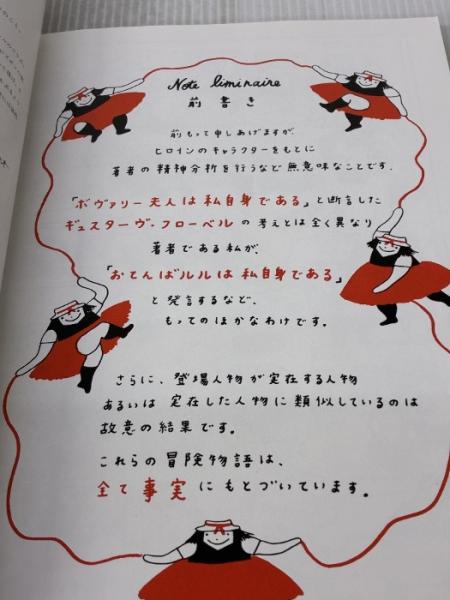 Note liminaire
前書き
前もって申しあげますが、
ヒロインのキャラクターをもとに
著者の精神分析を行うなど無意味なことです。
「ボヴァリー夫人は私自身である」と断言した
ギュスターヴ・フローベルの考えとは全く異なり
著者である私が、
「おてんばルルは私自身である」
と発言するなど、
もってのほかなわけです。
さらに、登場人物が実在する人物
あるいは実在した人物に類似しているのは
故意の結果です。
これらの冒険物語は、
全て事実にもとづいています。